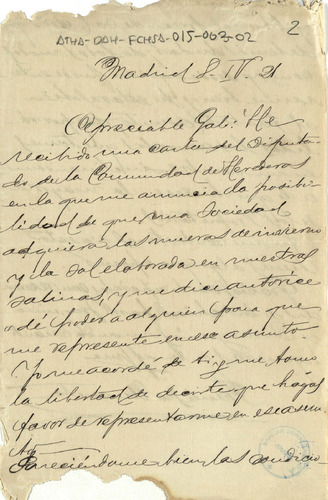 2
ATHA-DAH-FCHSA-015-063-02
Madrid 8-IV-21
Apreciable Gabi: He
recibido una carta del Diputa-
do de la Comunidad de Herederos
en la que me anuncia la posibi-
lidad de que una Sociedad
adquiera las mueras de invierno
y la sal elaborada en nuestras
salinas, y me dice autorice
o dé poder a alguien para que
me represente en ese asunto.
Yo me acordé de ti y me tomo
la libertad de decirte que hagas
favor de representarme en ese asun-
to
Pareciéndome bien las condicio